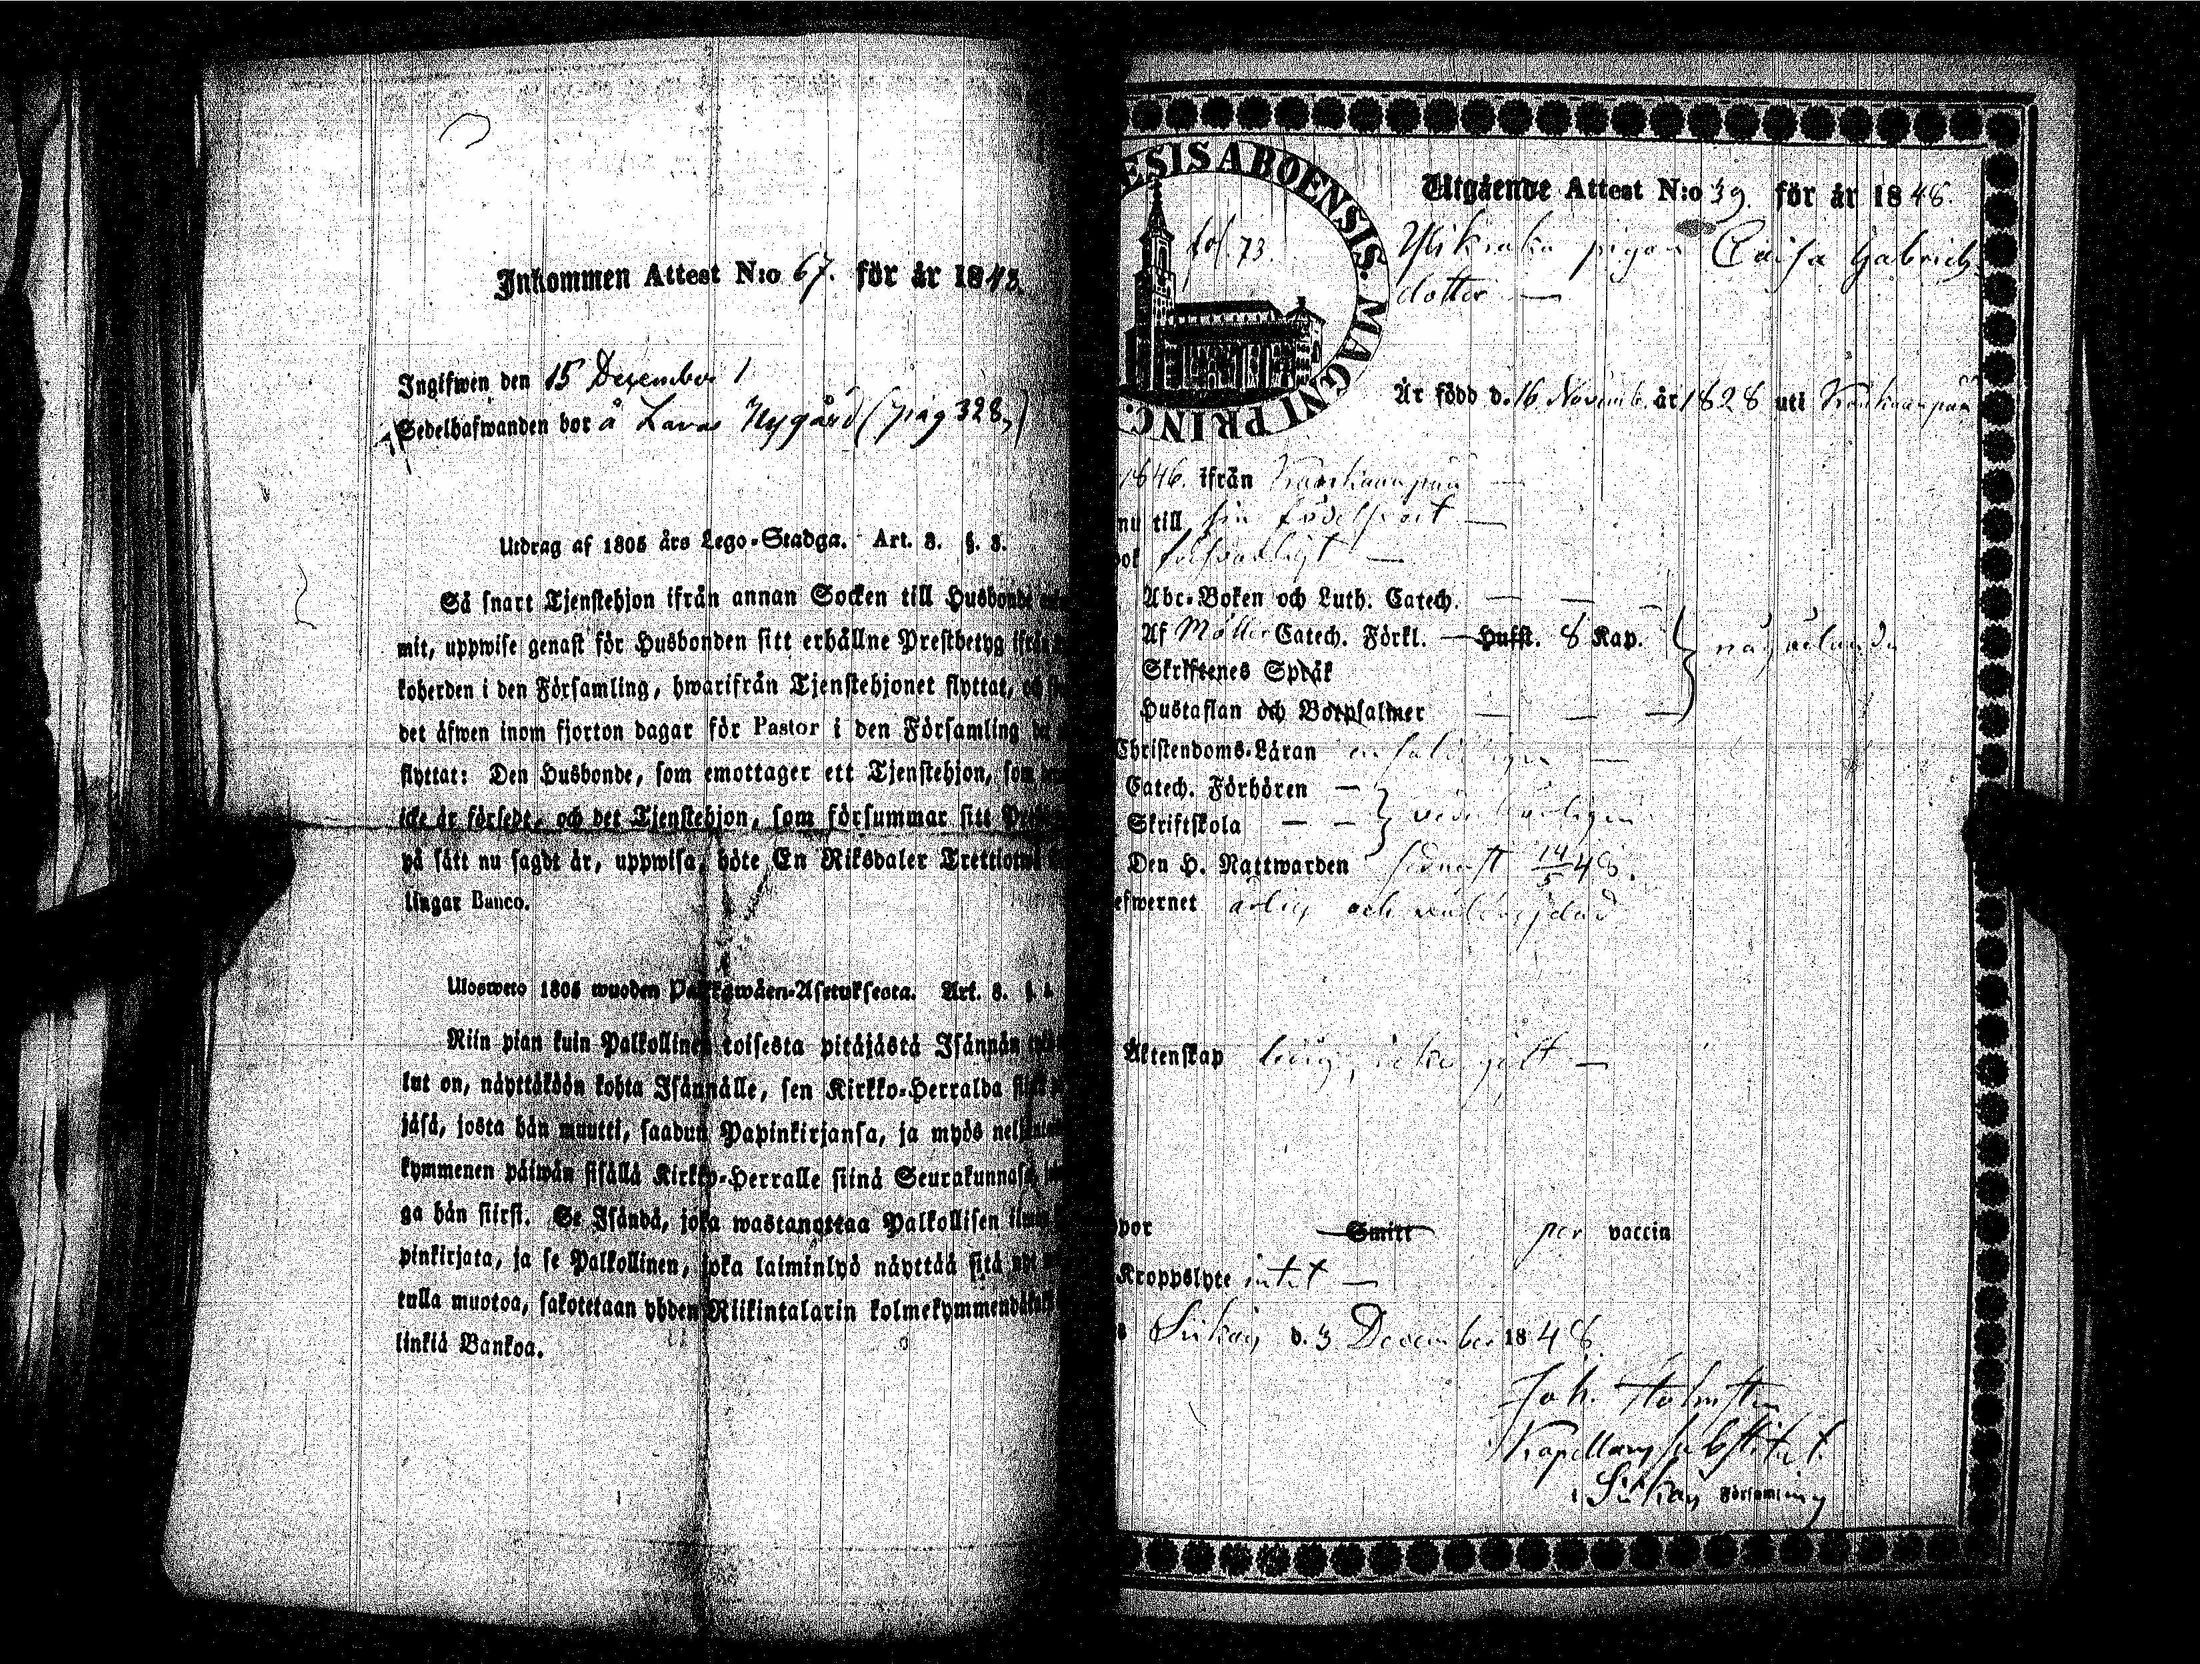 Inkommen Attest N:o 67. för år 1848.
Ingifwen den 15 December /
Sedelhafwanden bor å Lavas Nygård (pag 328,)
Utdrag af 1805 års Lego-Stadga. Art. 3. §. 3.
Så snart Tjenstehjon ifrån annan Socken till Husbonde
mit, uppwise genast för Husbonden sitt erhållne Prestbetyg ifrån
koherden i den Församling, hwarifrån Tjenstehjonet flyttat,
det äfwen inom fjorton dagar för Pastor i den Församling
flyttat: Den Husbonde, som emottager ett Tjenstehjon, som
icke är försedt, och det Tjenstehjon, som försummar sitt
på sätt nu sagdt är, uppwisa, böte En Riksdaler Trettiotwå
lingar Banco.
Ulosweto 1805 wuoden Palkkawäen-Asetuksesta. Art. 3. §.
Niin pian kuin Palkollinen toisesta pitäjästä Isännän
lut on, näyttäköön kohta Isännälle, sen Kirkko-Herralda
jäsä, josta hän muutti, saadun Papinkirjansa, ja myös neljän
kymmenen päiwän sisällä Kirkko-Herralle siinä Seurakunnasa,
ga hän siirsi. Se Isändä, joka wastanottaa Palkollisen ilman
pinkirjata, ja se Palkollinen, joka laiminlyö näyttää sitä nyt
tulla muotoa, sakotetaan yhden Riikintalarin kolmekymmendäkaksi
linkiä Bankoa.
ESIS ABOENSIS. MAGNI PRINC.
fol. 73.
Utgående Attest N:o 39. för år 1848.
pigan Caisa Gabriels
dotter —
Är född d. 16 Novemb. år 1828 uti Kankaanpää
1846. ifrån Kankaanpää —
nu till sin födelseort —
bok försvarligt —
Abc-Boken och Luth. Catech. — — —
Af Möller Catech. Förkl. — Hufst. 8 Kap.
Skriftenes Språk
någorlunda
Hustaflan och Botpsalmer — — —
Christendoms-Läran enfaldigen —
Catech. Förhören —
Skriftskola — —
vederbörligen
Den H. Nattwarden senast 14/5 48.
efwernet ärlig och
Äktenskap ledig, icke —
por Smitt per vaccin
Kroppslyte intet —
Siikais d. 3 December 1848.
Joh. Holmsten
Kapellans substitut
i Siikais Församling